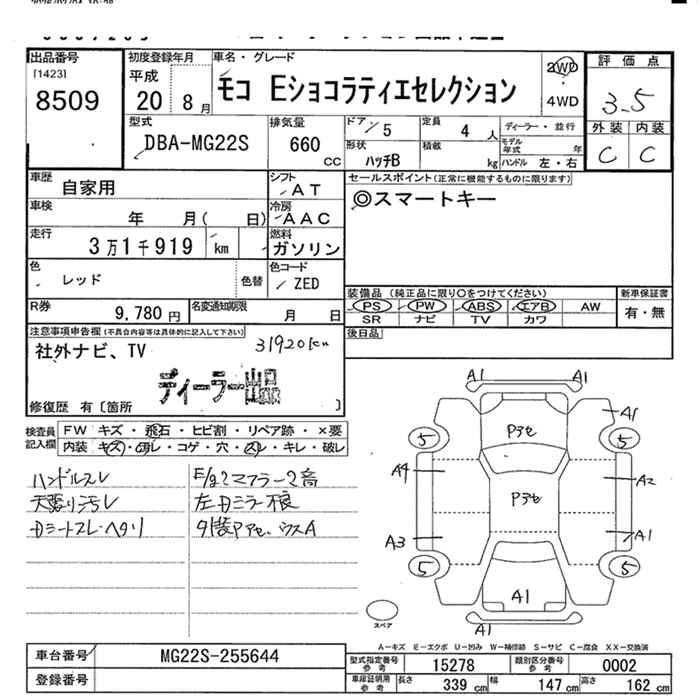 出品番号
[1423]
8509
初度登録年月
平成
20 8月
車名・グレード
モコ Eショコラティエセレクション
2WD
4WD
評価点
3.5
外装 内装
C C
型式
DBA-MG22S
排気量
660 CC
ドア
5
形状
ハッチB
定員
4人
積載
kg
ディーラー・並行
モデル年式 年
ハンドル 左・右
車歴
自家用
シフト
AT
車検
年 月( 日)
冷房
AAC
走行
3万1千919 km
燃料
ガソリン
色
レッド
色替
色コード
ZED
R券
9,780円
名変通知期限
月 日
セールスポイント(正常に機能するものに限ります)
◎スマートキー
装備品 (純正品に限り○をつけてください)
PS PW ABS エアB AW
SR ナビ TV カワ
新車保証書
有・無
後日品
注意事項申告欄(不具合内容等は具体的に記入して下さい)
社外ナビ、TV
31920km
ディーラー出品
修復歴 有〔箇所
検査員記入欄
FW キズ・飛石・ヒビ割・リペア跡・×要
内装 キズ・汚レ・コゲ・穴・スレ・キレ・破レ
ハンドルスレ
天張り汚レ
Dシートスレ・ヘタリ
E/g2マフラー2音
左Dミラー不良
外装Pアセ、ウスA
A1 A1
A1
5 5
Pアセ
A4 A2
Pアセ
A3 A1
5 5
A1
A1
スペア
A-キズ E-エクボ U-凹み W-補修跡 S-サビ C-腐食 XX-交換済
車台番号
MG22S-255644
登録番号
型式指定番号参考
15278
類別区分番号参考
0002
車庫証明用参考
長さ 339 cm 幅 147 cm 高さ 162 cm